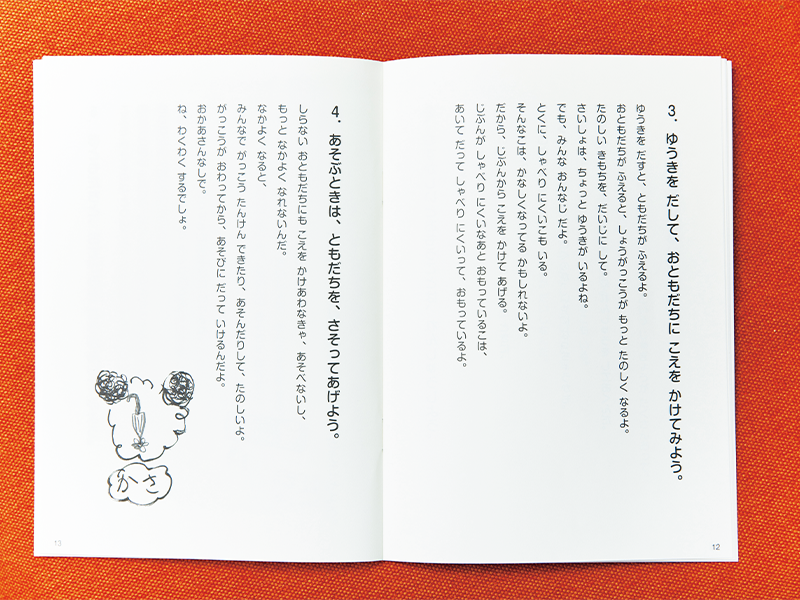 3．ゆうきを だして、おともだちに こえを かけてみよう。
ゆうきを だすと、ともだちが ふえるよ。
おともだちが ふえると、しょうがっこうが もっと たのしく なるよ。
たのしい きもちを、だいじに して。
さいしょは、ちょっと ゆうきが いるよね。
でも、みんな おんなじ だよ。
とくに、しゃべり にくいこも いる。
そんなこは、かなしくなってる かもしれないよ。
だから、じぶんから こえを かけて あげる。
じぶんが しゃべり にくいなあと おもっているこは、
あいて だって しゃべり にくいって、おもっているよ。
12
4．あそぶときは、ともだちを、さそってあげよう。
しらない おともだちにも こえを かけあわなきゃ、あそべないし、
もっと なかよく なれないんだ。
なかよく なると、
みんなで がっこう たんけん できたり、あそんだりして、たのしいよ。
がっこうが おわってから、あそびに だって いけるんだよ。
おかあさんなしで。
ね、わくわく するでしょ。
かさ
13